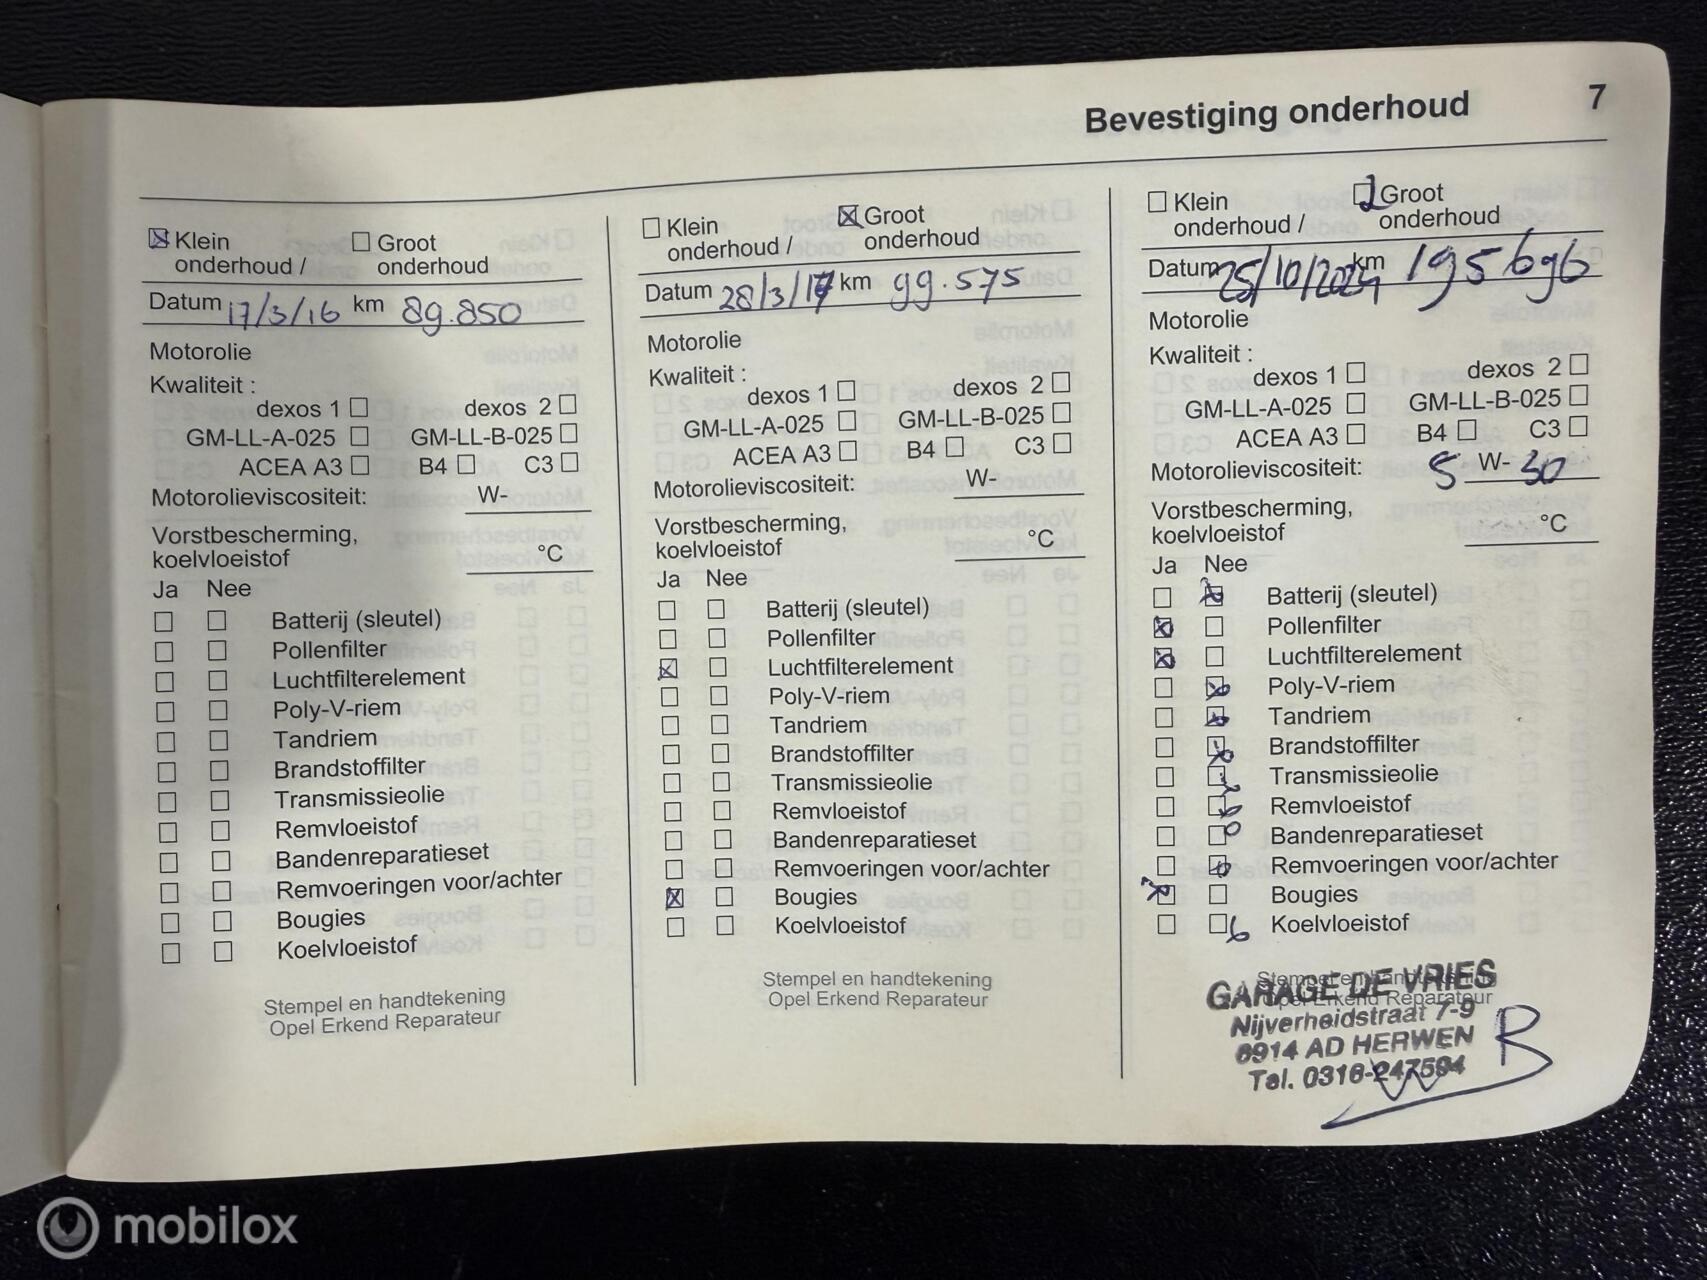 Bevestiging onderhoud 7
Klein onderhoud / Groot onderhoud
Datum 17/3/16 km 89.850
Motorolie
Kwaliteit :
dexos 1 dexos 2
GM-LL-A-025 GM-LL-B-025
ACEA A3 B4 C3
Motorolieviscositeit: W-
Vorstbescherming,
koelvloeistof °C
Ja Nee
Batterij (sleutel)
Pollenfilter
Luchtfilterelement
Poly-V-riem
Tandriem
Brandstoffilter
Transmissieolie
Remvloeistof
Bandenreparatieset
Remvoeringen voor/achter
Bougies
Koelvloeistof
Stempel en handtekening
Opel Erkend Reparateur
Klein onderhoud / Groot onderhoud
Datum 28/3/17 km 99.575
Motorolie
Kwaliteit :
dexos 1 dexos 2
GM-LL-A-025 GM-LL-B-025
ACEA A3 B4 C3
Motorolieviscositeit: W-
Vorstbescherming,
koelvloeistof °C
Ja Nee
Batterij (sleutel)
Pollenfilter
Luchtfilterelement
Poly-V-riem
Tandriem
Brandstoffilter
Transmissieolie
Remvloeistof
Bandenreparatieset
Remvoeringen voor/achter
Bougies
Koelvloeistof
Stempel en handtekening
Opel Erkend Reparateur
Klein onderhoud / Groot onderhoud
Datum 25/10/2024 km 195696
Motorolie
Kwaliteit :
dexos 1 dexos 2
GM-LL-A-025 GM-LL-B-025
ACEA A3 B4 C3
Motorolieviscositeit: 5 W- 30
Vorstbescherming,
koelvloeistof °C
Ja Nee
Batterij (sleutel)
Pollenfilter
Luchtfilterelement
Poly-V-riem
Tandriem
Brandstoffilter
Transmissieolie
Remvloeistof
Bandenreparatieset
Remvoeringen voor/achter
Bougies
Koelvloeistof
Stempel en handtekening
Opel Erkend Reparateur
GARAGE DE VRIES
Nijverheidstraat 7-9
6914 AD HERWEN
Tel. 0316-247594
mobilox